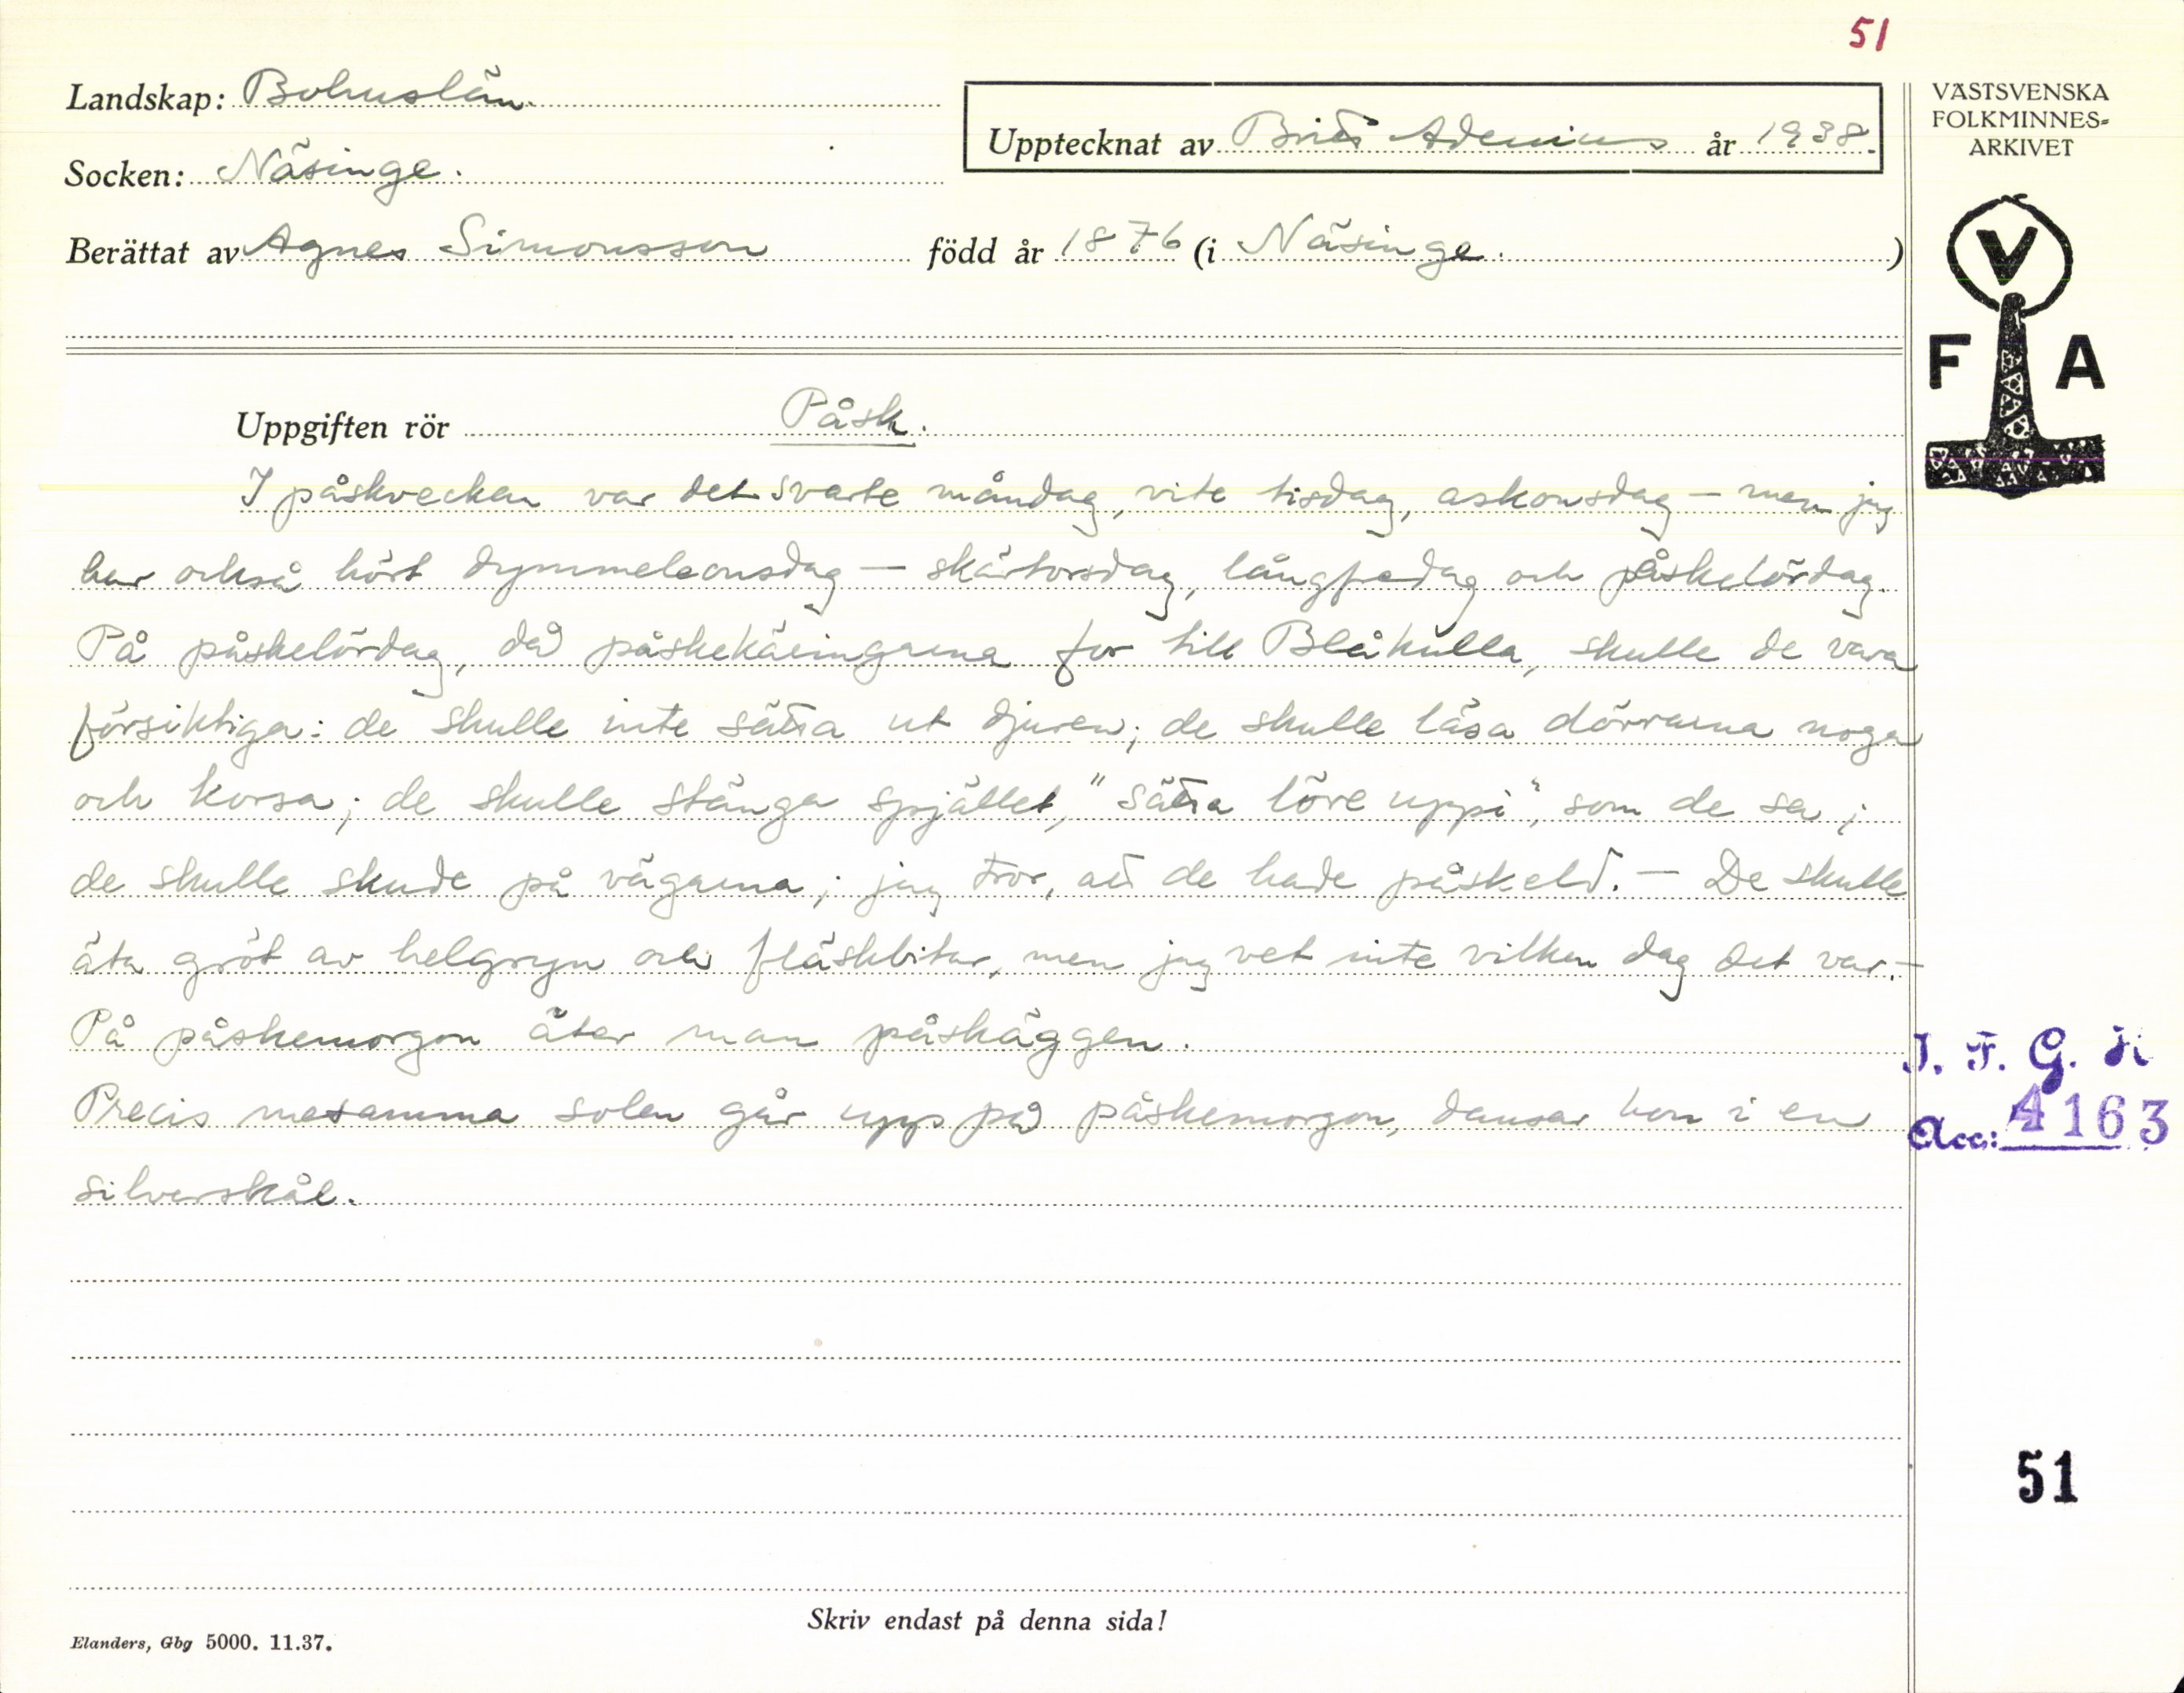 51
Landskap: Bohuslän.
Upptecknat av Britt Adenius år 1938.
Socken: Näsinge.
Berättat av Agnes Simonsson född år 1876 (i Näsinge.)
VÄSTSVENSKA
FOLKMINNES=
ARKIVET
V
F A
Uppgiften rör Påsk.
I påskvecken var det svarte måndag, vite tisdag, askonsdag – men jag
har också hört dymmeleonsdag – skärtorsdag, långfredag och påskelördag.
På påskelördag, då påskekäringarna for till Blåkulla, skulle de vara
försiktiga: de skulle inte sätta ut djuren; de skulle låsa dörrarna noga
och korsa; de skulle stänga spjället, "sätta löre uppi", som de sa;
de skulle skude på vägarna; jag tror, att de hade påskeld. – De skulle
äta gröt av helgryn och fläskbitar, men jag vet inte vilken dag det var. –
På påskemorgon äter man påskäggen.
Precis mesamma solen går upp på påskemorgon, dansar hon i en
silverskål.
I. F. G. H
Acc: 4163
51
Skriv endast på denna sida!
Elanders, Gbg 5000. 11.37.